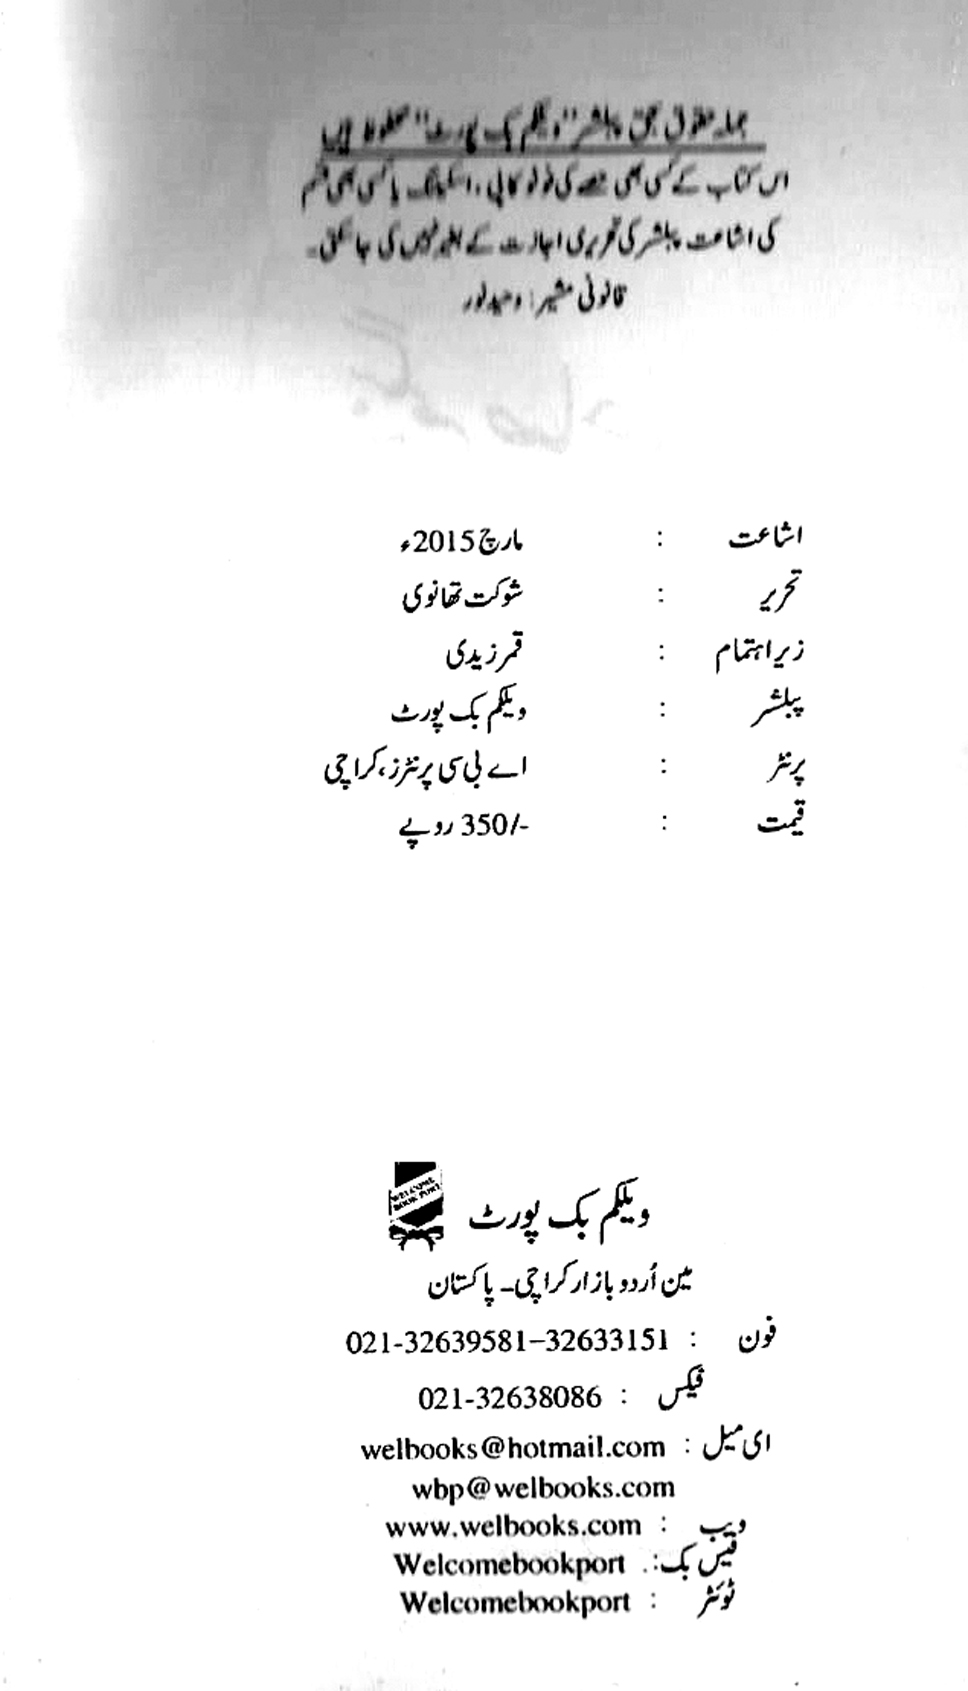 جملہ حقوق بحق پبلشر "ویلکم بک پورٹ" محفوظ ہیں
اس کتاب کے کسی بھی حصے کی فوٹو کاپی، اسکیننگ یا کسی بھی قسم
کی اشاعت پبلشر کی تحریری اجازت کے بغیر نہیں کی جا سکتی۔
قانونی مشیر: وحید نور
اشاعت : مارچ 2015ء
تحریر : شوکت تھانوی
زیر اہتمام : قمر زیدی
پبلشر : ویلکم بک پورٹ
پرنٹر : اے بی سی پرنٹرز، کراچی
قیمت : 350/- روپے
WELCOME
BOOK PORT
ویلکم بک پورٹ
مین اُردو بازار کراچی۔ پاکستان
فون : 021-32639581–32633151
فیکس : 021-32638086
ای میل : welbooks@hotmail.com
wbp@welbooks.com
ویب : www.welbooks.com
فیس بک : Welcomebookport
ٹوئٹر : Welcomebookport